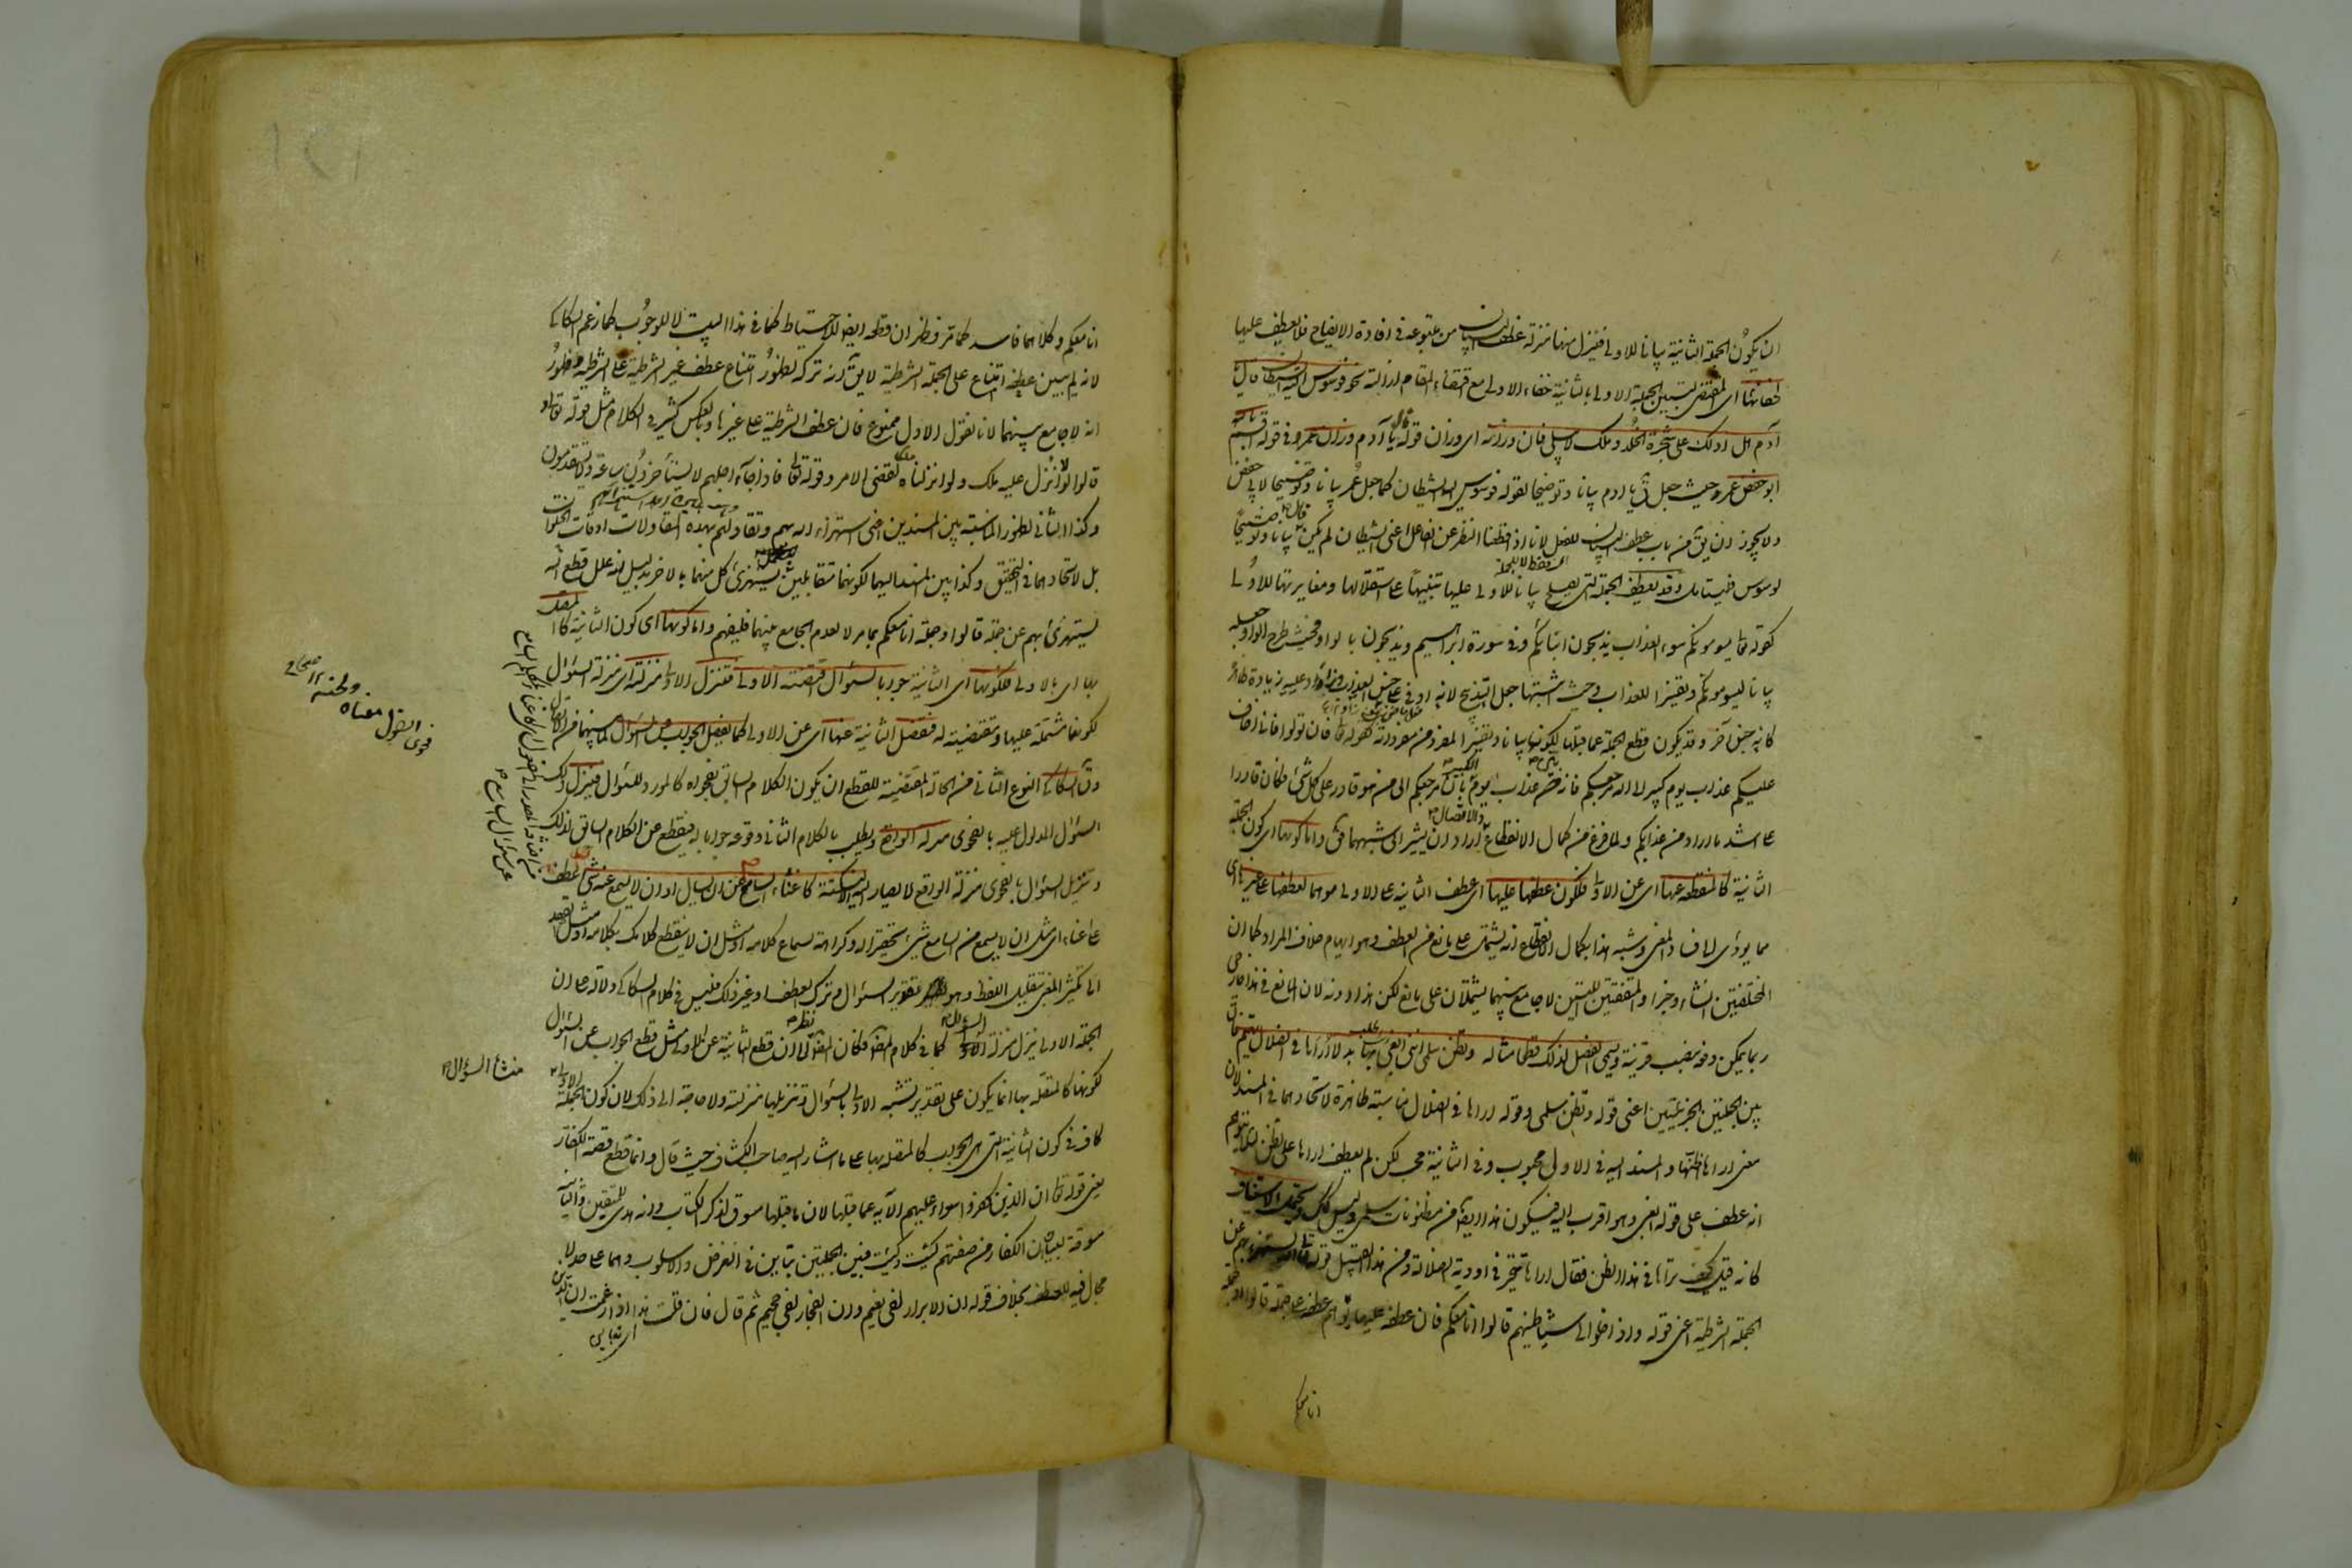 ان يكون الجملة الثانية بيانا للاولى فينزل منها منزلة عطف البيان من متبوعه فى افادة الايضاح فلا يعطف عليها
لخفائها اى المقتضى لتبيين الجملة الاولى بالثانية خفاء الاولى مع اقتضاء المقام ازالته نحو فوسوس اليه الشيطان قال يا
آدم هل ادلك على شجرة الخلد وملك لا يبلى فان وزانه اى وزان قوله قال يا آدم وزان عمر فى قوله اقسم بالله
ابو حفص عمر حيث جعل قال يا ادم بيانا وتوضيحا لقوله فوسوس اليه الشيطان كما جعل عمر بيانا وتوضيحا لابى حفص
ولا يجوز ان يق من باب عطف البيان للفعل لانا اذا قطعنا النظر عن الفاعل اعنى الشيطان لم يكن قال بيانا وتوضيحا
لوسوس فليتامل وقد يعطف الجملة التى يصلح بيانا للاولى عليها تنبيها على استقلالها ومغايرتها للاولى
كقوله تعالى يسومونكم سوء العذاب يذبحون ابناءكم وفى سورة ابراهيم ويذبحون بالواو فحيث طرح الواو جعله
بيانا ليسومونكم وتفسيرا للعذاب وحيث اثبتها جعل التذبيح لانه اوفى على جنس العذاب وزاد عليه زيادة ظاهرة
كانه جنس آخر وقد يكون قطع الجملة عما قبلها لكونها بيانا وتفسيرا لمفرد من مفرداته كقوله تعالى فان تولوا فانى اخاف
عليكم عذاب يوم كبير الى الله مرجعكم فانه فسر عذاب يوم كبير بان مرجعكم الى من هو قادر على كل شئ فكان قادرا
على اشد ما اراد من عذابكم ولما فرغ من كمال الانقطاع والاتصال اراد ان يشير الى شبههما فق واما كونها اى كون الجملة
الثانية كالمنقطعة عنها اى عن الاولى فلكون عطفها عليها اى عطف الثانية على الاولى موهما لعطفها على غيرها
مما يؤدى الى فساد المعنى وشبه هذا بكمال الانقطاع انه يشتمل على مانع من العطف وهو ايهام خلاف المراد كما ان
المختلفتين انشاء وخبرا والمتفقتين اللتين لا جامع بينهما يشتملان على مانع لكن هذا دونه لان المانع فى هذا خارجى
ربما يمكن دفعه بنصب قرينة ويسمى الفصل لذلك قطعا مثاله وتظن سلمى اننى ابغى بها بدلا اراها فى الضلال تهيم فان
بين الجملتين الخبريتين اعنى قوله وتظن سلمى وقوله اراها فى الضلال مناسبة ظاهرة لاتحادهما فى المسند لان
معنى اراها اظنها والمسند اليه فى الاولى محبوب وفى الثانية محب لكن لم يعطف اراها على تظن لئلا يتوهم
انه عطف على قوله ابغى وهو اقرب اليه فيكون هذا ايضا من مظنونات سلمى وليس كذلك ويحتمل الاستيناف
كانه قيل كيف تراها فى هذا الظن فقال اراها تتحير فى اودية الضلالة ومن هذا القبيل قوله تعالى الله يستهزئ بهم عن
الجملة الشرطية اعنى قوله واذا خلوا الى شياطينهم قالوا انا معكم فان عطفه عليها يوهم عطفه على جملة قالوا او جملة
انا معكم
انا معكم وكلاهما فاسد كما مر فظهر ان قطعه ايضا للاحتياط كما فى هذا البيت لا للوجوب كما زعم السكاكى
لانه لم يبين عطفه امتناع على الجملة الشرطية لا يق انه تركه لظهور امتناع عطف غير الشرطية على الشرطية وظهور
انه لا جامع بينهما لانا نقول الاول ممنوع فان عطف الشرطية على غيرها وبالعكس كثير فى الكلام مثل قوله تعالى و
قالوا لولا انزل عليه ملك ولو انزلنا ملكا لقضى الامر وقوله تعالى فاذا جاء اجلهم لا يستأخرون ساعة ولا يستقدمون
وكذا الثانى لظهور المناسبة بين المسندين اعنى استهزاء الله بهم وتقاولهم بهذه المقاولات اوقات الخلوات
بل لاتحادهما فى التحقيق وكذا بين المسند اليهما لكونهما متقابلين يستهزئ كل منهما بالاخر بدليل انه علل قطع الله
يستهزئ بهم عن جملة قالوا وجملة انا معكم بما مر لا لعدم الجامع بينهما فليفهم واما كونها اى كون الثانية كالمتصلة
بها اى بالاولى فلكونها اى الثانية جوابا لسؤال اقتضته الاولى فتنزل الاولى منزلته اى منزلة السؤال
لكونها مشتملة عليها ومقتضية له فتفصل الثانية عنها اى عن الاولى كما يفصل الجواب عن السؤال لما بينهما من الاتصال
وق السكاكى النوع الثانى من الحالة المقتضية للقطع ان يكون الكلام السابق بفحواه كالمورد للسؤال فينزل ذلك
السؤال المدلول عليه بالفحوى منزلة الواقع ويطلب بالكلام الثانى وقوعه جوابا له فيقطع عن الكلام السابق لذلك
وتنزيل السؤال بالفحوى منزلة الواقع لا يصار اليه الا لنكتة كاغناء السامع عن ان يسال او ان لا يسمع منه شئ عطف
على اغناء اى مثل ان لا يسمع من السامع شئ تحقيرا له وكراهة لسماع كلامه او مثل ان لا ينقطع كلامك بكلامه او مثل القصد
الى تكثير المعنى بتقليل اللفظ وهو تقدير السؤال وترك العطف او غير ذلك فليس فى كلام السكاكى دلالة على ان
الجملة الاولى ينزل منزلة السؤال كما فى كلام المصنف فكان المصنف نظر الى ان قطع الثانية عن الاولى مثل قطع الجواب عن السؤال
لكونها كالمتصلة بها انما يكون على تقدير تشبيه الاولى بالسؤال وتنزيلها منزلته ولا حاجة الى ذلك لان كون الجملة الاولى
كاف فى كون الثانية التى هى الجواب كالمتصلة بها على ما اشار اليه صاحب الكشاف حيث قال وانما قطع قصة الكفار
يعنى قوله تعالى ان الذين كفروا سواء عليهم الاية عما قبلها لان ما قبلها مسوق لذكر الكتاب وانه هدى للمتقين والثانية
مسوقة لبيان ان الكفار من صفتهم كيت وكيت فبين الجملتين تباين فى الغرض والاسلوب وهما على حد لا
مجال فيه للعطف بخلاف قوله ان الابرار لفى نعيم وان الفجار لفى جحيم ثم قال فان قلت هذا اذا زعمت ان الذين
فحوى القول معناه ولحنه صحاح
منشأ السؤال